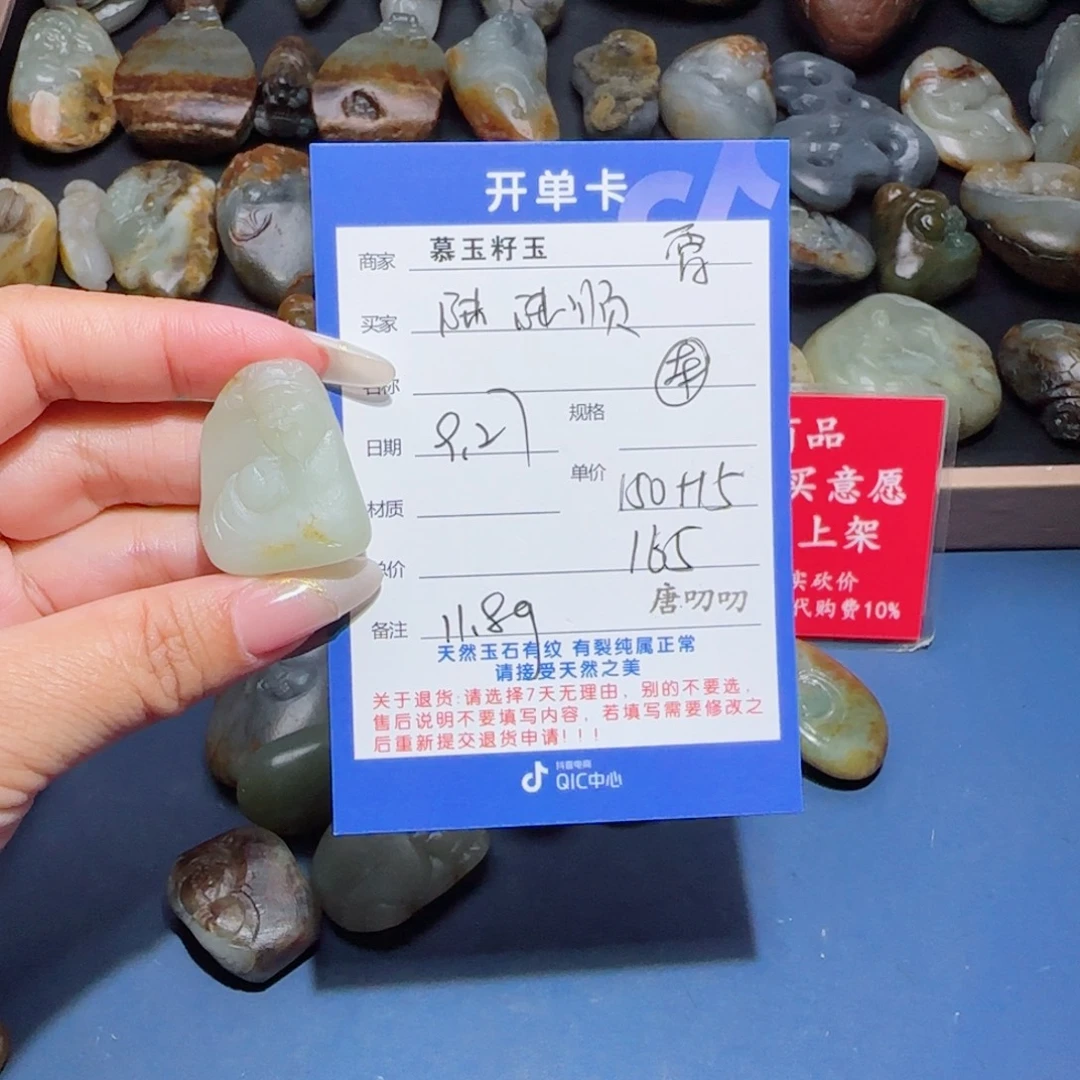 开单卡
商家 慕玉籽玉
买家 陆陆顺
名称
日期 9.27 规格
材质 单价 150+15
总价 165
备注 11.89 唐叨叨
天然玉石有纹 有裂纯属正常
请接受天然之美
关于退货:请选择7天无理由，别的不要选，
售后说明不要填写内容，若填写需要修改之
后重新提交退货申请!!!
抖音电商
QIC中心
商品
买意愿
上架
实砍价
代购费10%